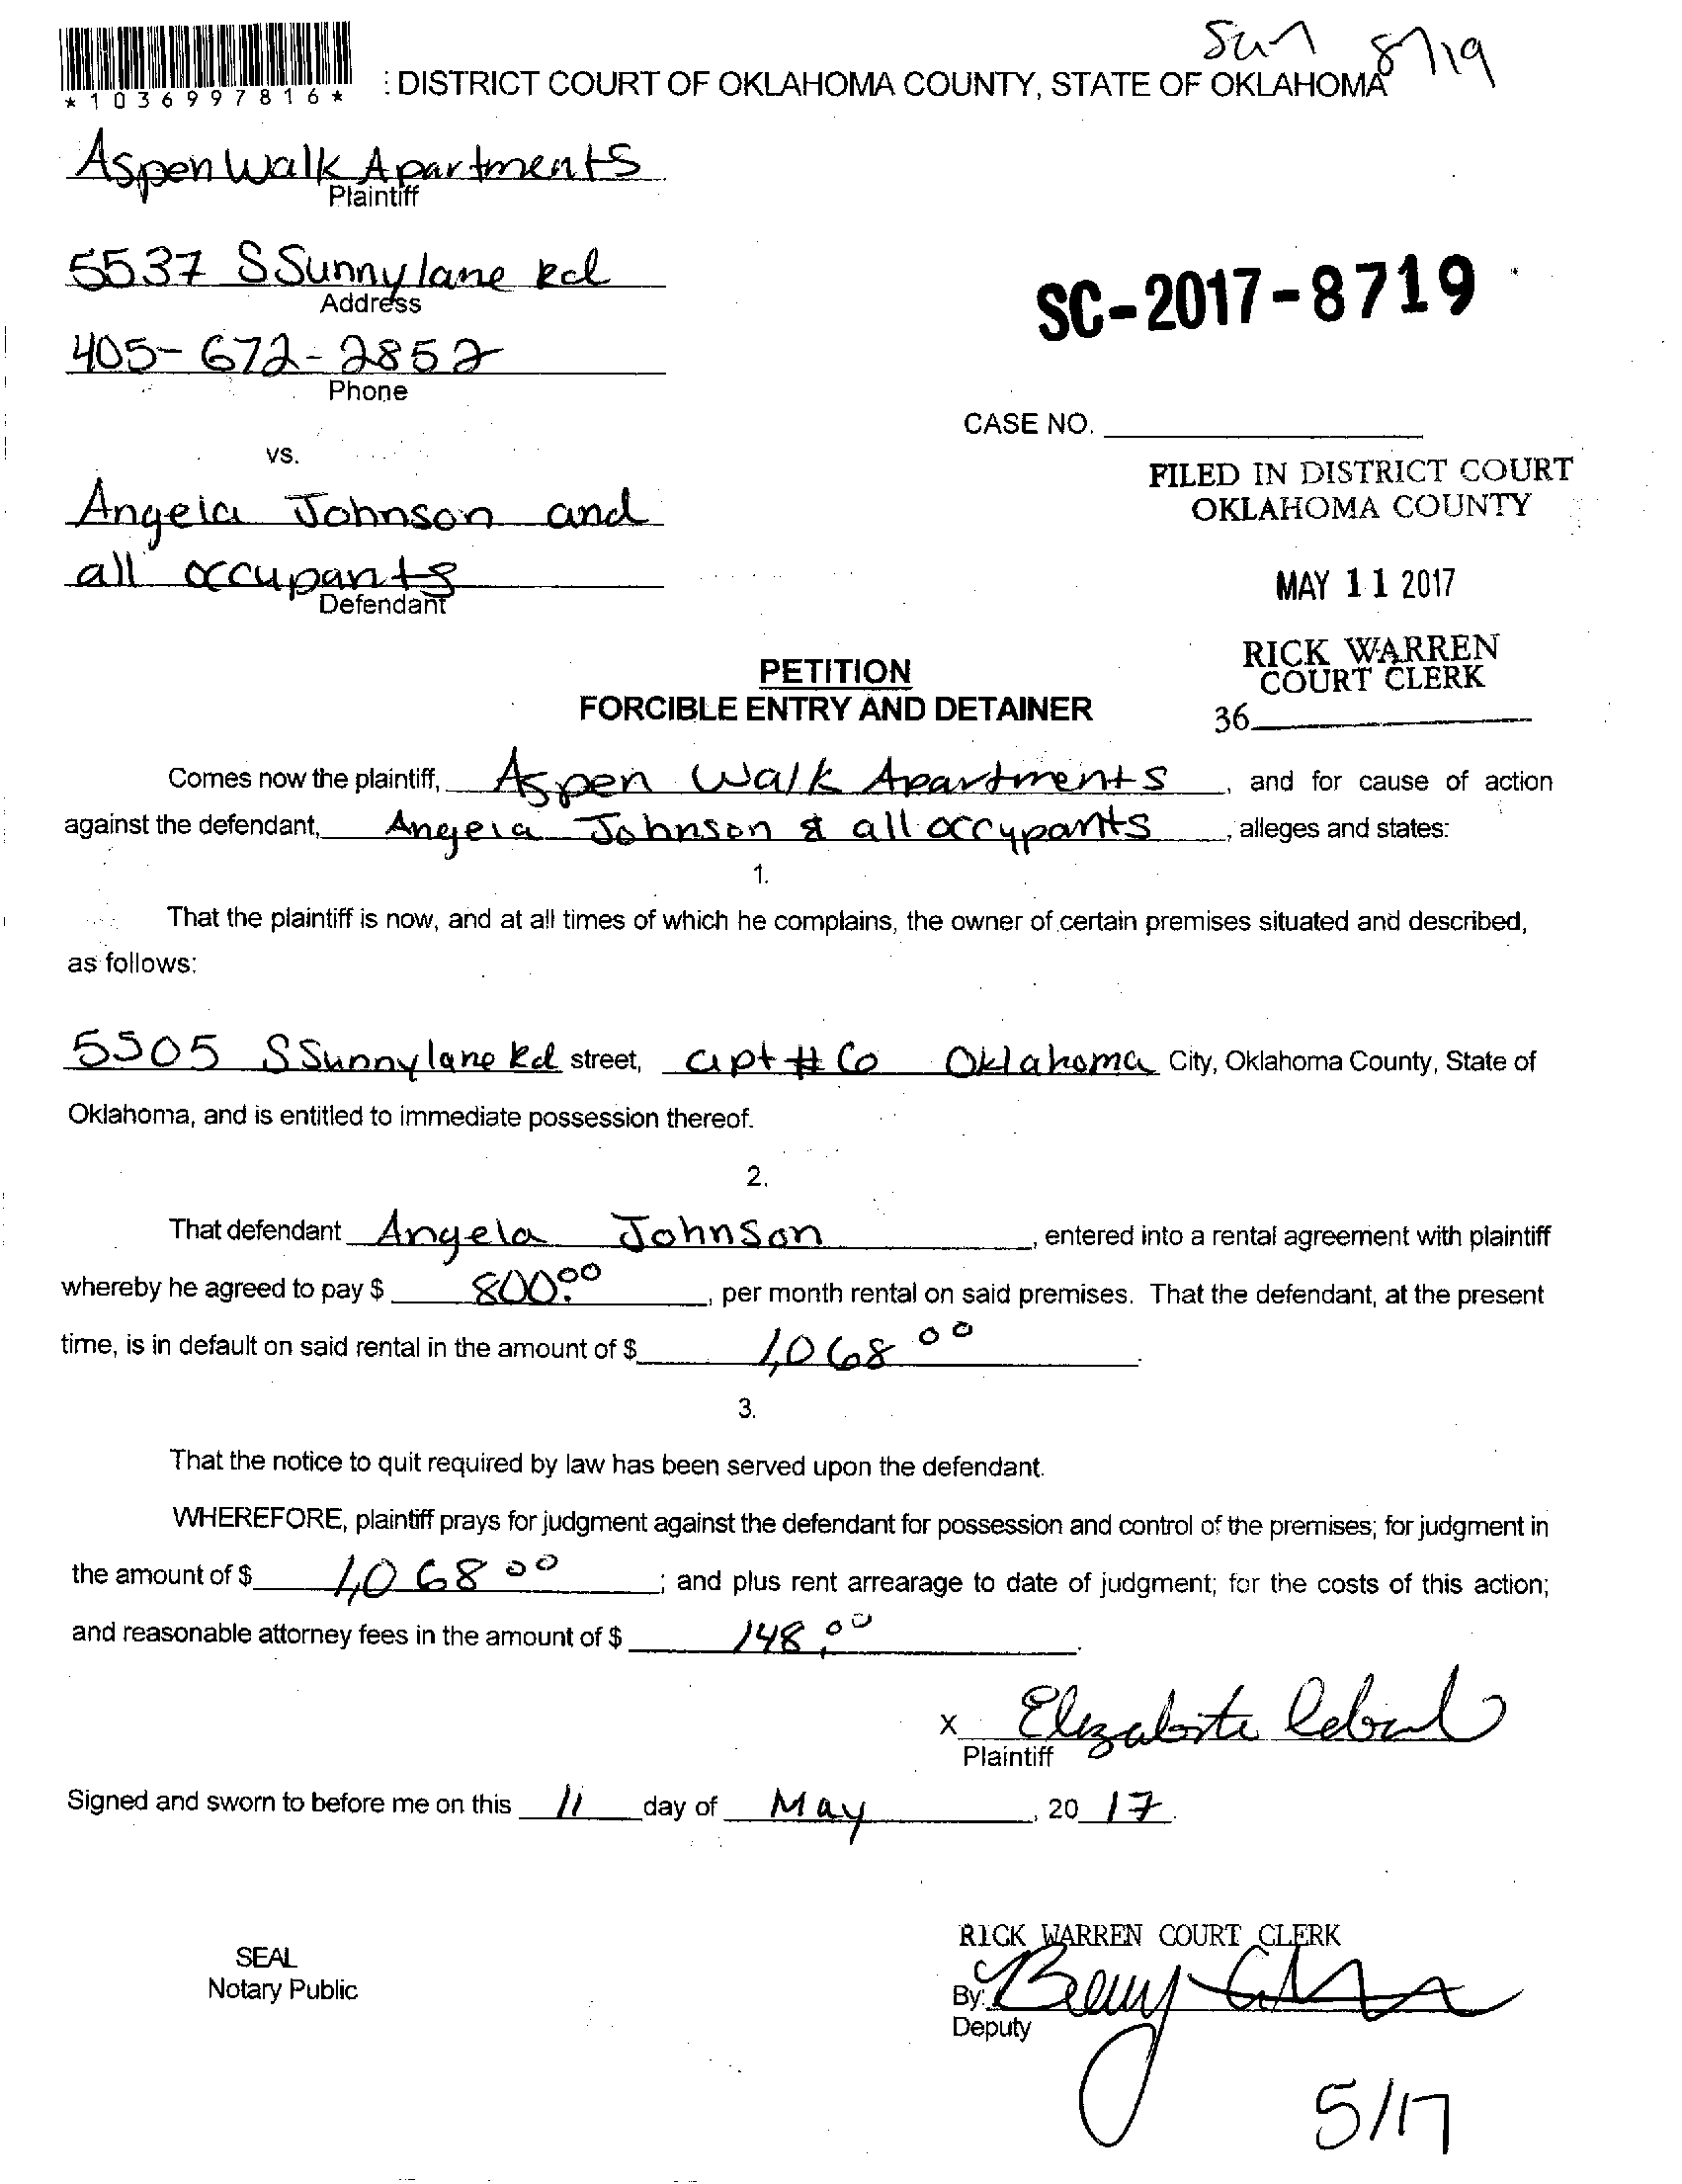 Sun 8719
*1036997816*
: DISTRICT COURT OF OKLAHOMA COUNTY, STATE OF OKLAHOMA
Aspen Walk Apartments
Plaintiff
5537 S Sunnylane Rd
Address
SC-2017-8719
405-672-2852
Phone
CASE NO.
vs.
FILED IN DISTRICT COURT
OKLAHOMA COUNTY
Angela Johnson and
all occupants
Defendant
MAY 11 2017
RICK WARREN
COURT CLERK
36
PETITION
FORCIBLE ENTRY AND DETAINER
Comes now the plaintiff, Aspen Walk Apartments, and for cause of action
against the defendant, Angela Johnson & all occupants, alleges and states:
1.
That the plaintiff is now, and at all times of which he complains, the owner of certain premises situated and described,
as follows:
5505 S Sunnylane Rd street, apt # 6 Oklahoma City, Oklahoma County, State of
Oklahoma, and is entitled to immediate possession thereof.
2.
That defendant Angela Johnson, entered into a rental agreement with plaintiff
whereby he agreed to pay $ 800.00, per month rental on said premises. That the defendant, at the present
time, is in default on said rental in the amount of $ 1,068 00.
3.
That the notice to quit required by law has been served upon the defendant.
WHEREFORE, plaintiff prays for judgment against the defendant for possession and control of the premises; for judgment in
the amount of $ 1,068 00; and plus rent arrearage to date of judgment; for the costs of this action;
and reasonable attorney fees in the amount of $ 148.00.
x
Plaintiff
Signed and sworn to before me on this 11 day of May, 20 17.
RICK WARREN COURT CLERK
SEAL
Notary Public
By:
Deputy
5/17